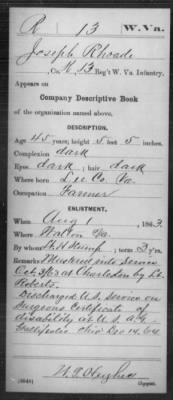 R 13 W. Va.
Joseph Rhoads
, Co. K, 13 Reg't W. Va. Infantry.
Appears on
Company Descriptive Book
of the organization named above.
DESCRIPTION.
Age 45 years; height 5 feet 5 inches.
Complexion dark
Eyes dark ; hair dark
Where born Lee Co. Va.
Occupation Farmer
ENLISTMENT.
When Aug 1 , 1863.
Where Walton Va.
By whom ; term 3 y'rs.
Remarks Mustered into Service
Oct. 9/63 at Charleston by Lt.
Roberts.
Discharged U.S. service on
Surgeons Certificate of
disability at U.S. A. G. H.
Gallipolis Ohio Dec 14. 64
W. T. Hughes
Copyist.